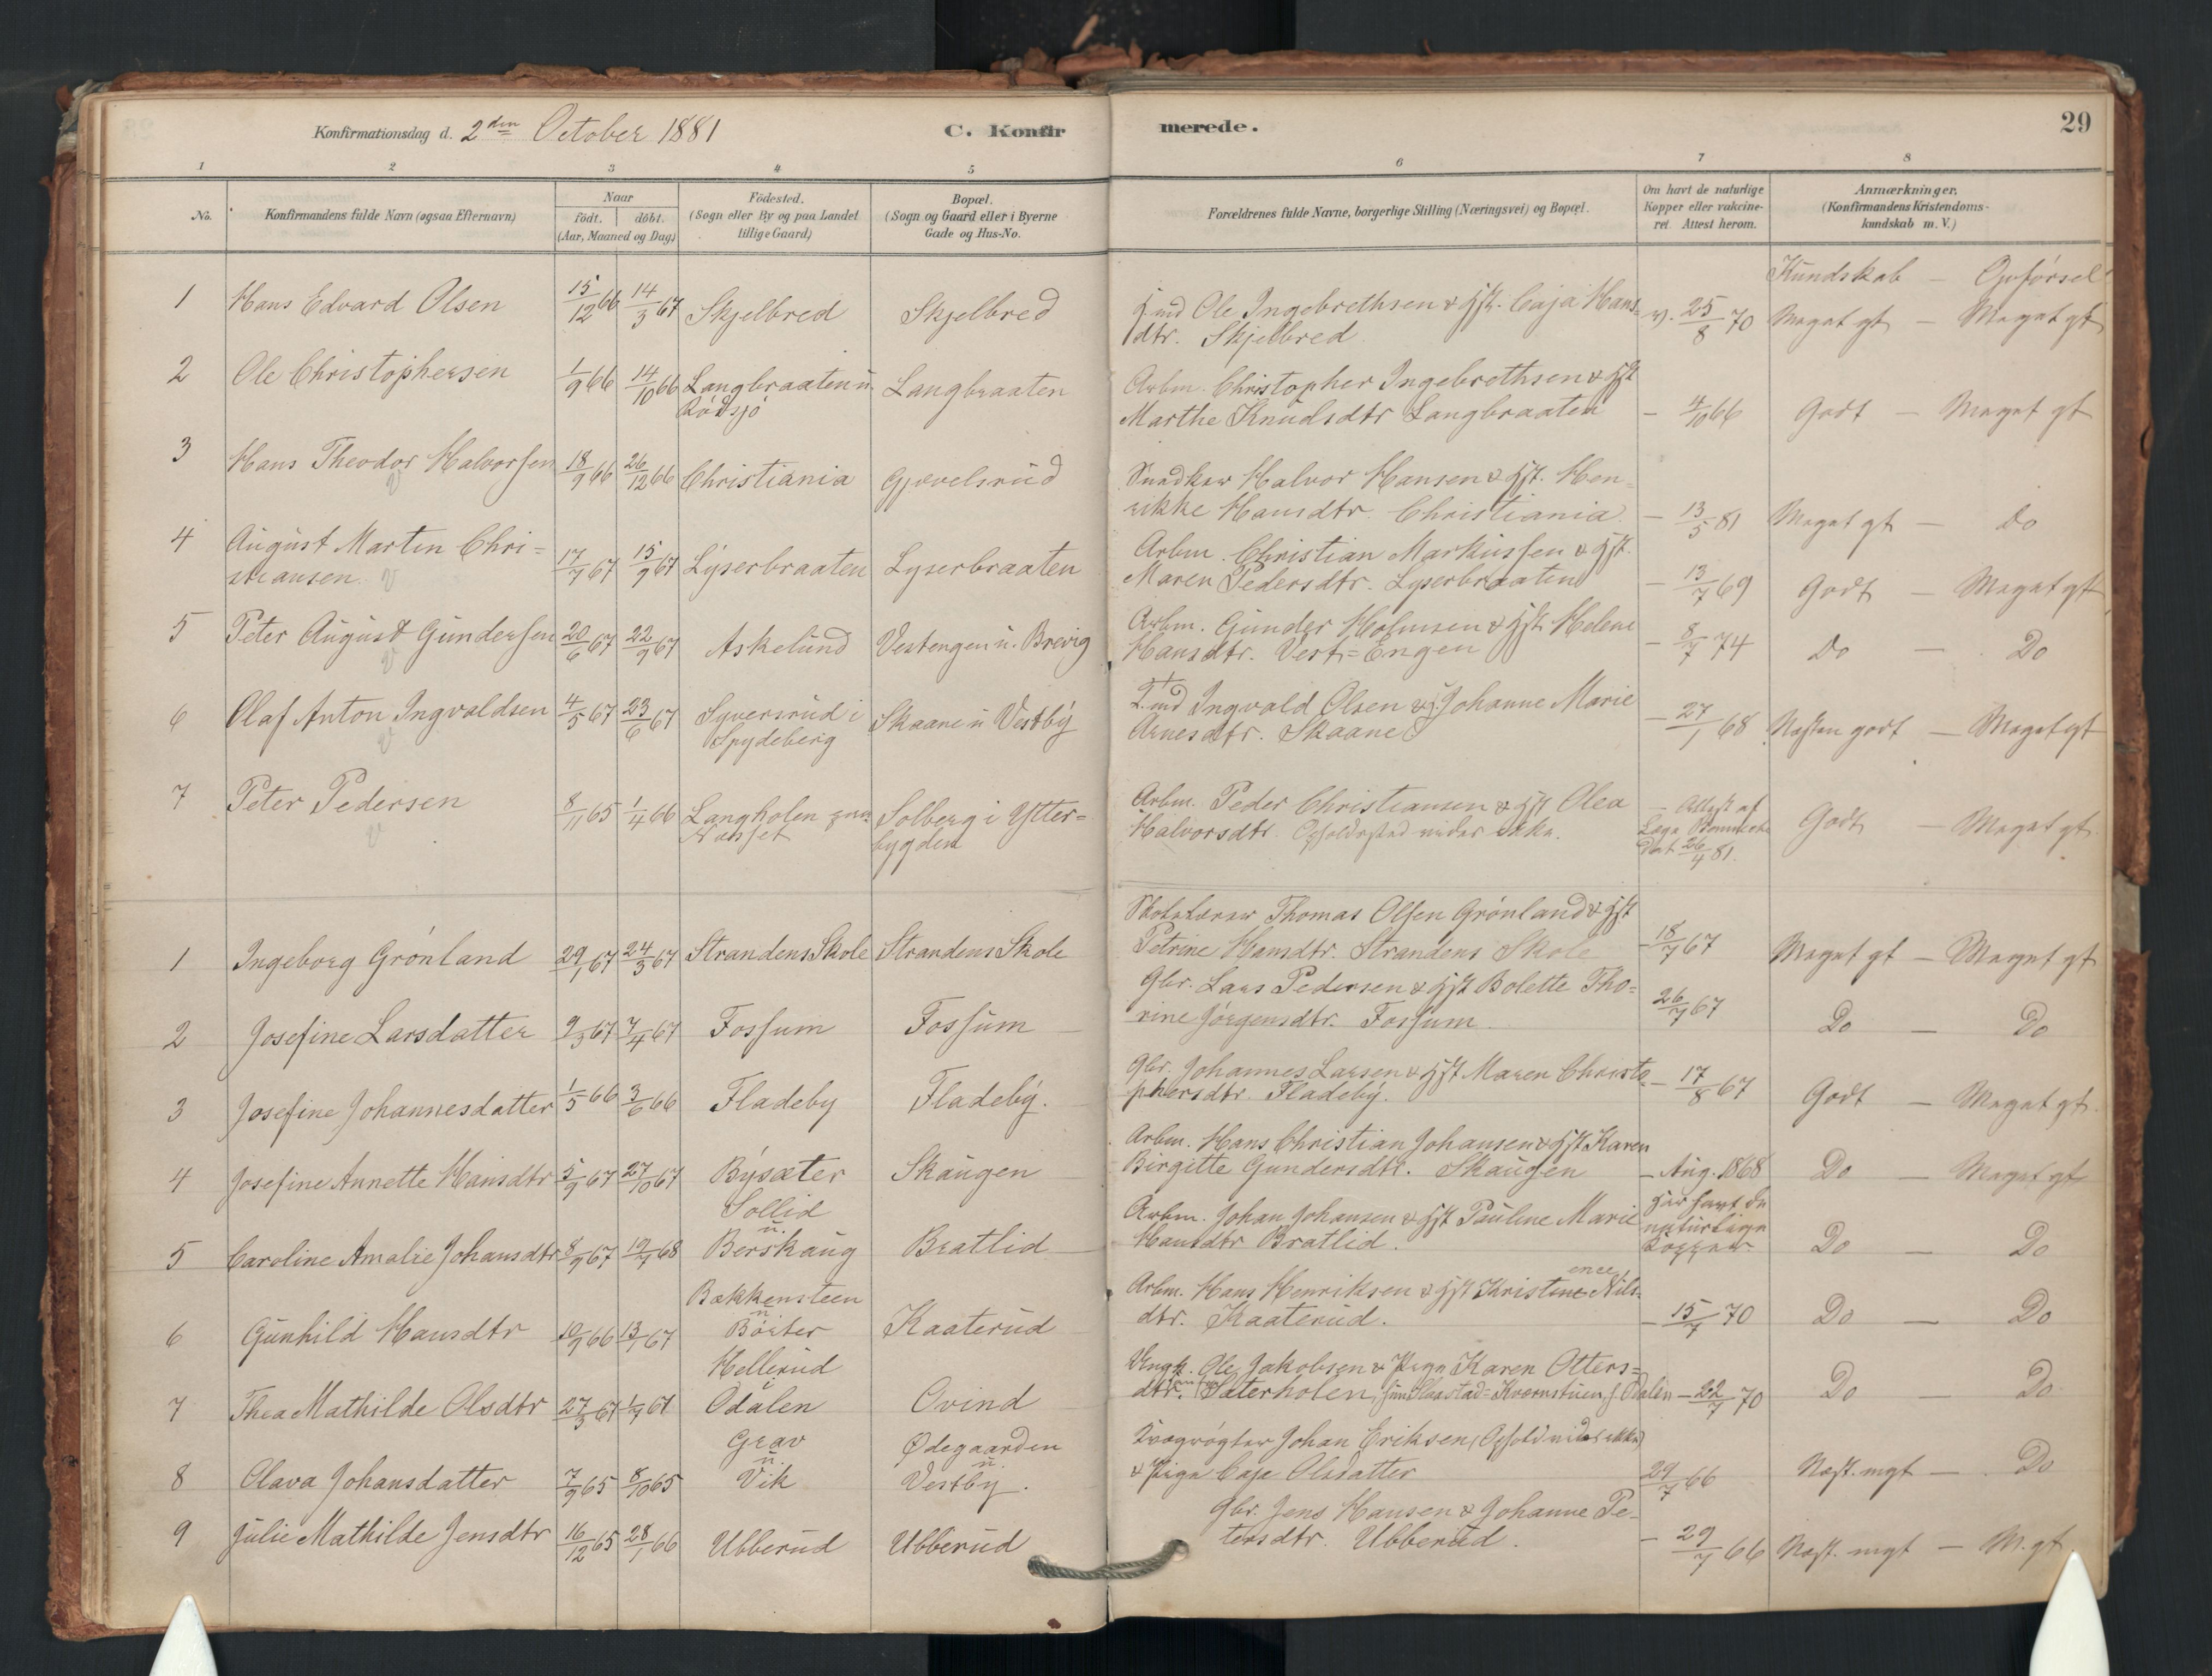 Konfirmationsdag d. 2den October 1881 C. Konfirmerede. 29
1 2 3 4 5 6 7 8
No. Konfirmandens fulde Navn (ogsaa Efternavn) Naar födt. döbt. (Aar, Maaned og Dag.) Födested. (Sogn eller By og paa Landet tillige Gaard) Bopæl. (Sogn og Gaard eller i Byerne Gade og Hus-No. Forældrenes fulde Navne, borgerlige Stilling (Næringsvei) og Bopæl. Om havt de naturlige Kopper eller vakcineret. Attest herom. Anmærkninger. (Konfirmandens Kristendomskundskab m. V.)
Kundskab — Opførsel
1 Hans Edvard Olsen 15/12 66 14/3 67 Skjelbred Skjelbred Ole Ingebrethsen & Hst. Caja Hans=
dtr. Skjelbred v. 25/8 70 Meget gt — Meget gt
2 Ole Christophersen 1/9 66 14/10 66 Langbraaten u. Langbraaten Arbm. Christopher Ingebrethsen & Hst
Rødsjö Marthe Knudsdtr Langbraaten — 4/10 66 Godt — Meget gt
3 Hans Theodor Halvorsen 18/9 66 26/12 66 Christiania Gjævelsrud Halvor Hansen & Hst. Hen=
rikke Hansdtr. Christiania — 13/5 81 Meget gt — Do
4 August Martin Chri= 17/7 67 15/9 67 Lyserbraaten Lyserbraaten Arbm. Christian Markussen & Hst.
stiansen Maren Pedersdtr. Lyserbraaten — 13/7 69 Godt — Meget gt
5 Peter August Gundersen 20/6 67 22/9 67 Askelund Vestengen u. Brevig Arbm. Gunder Holmsen & Hst Helene
Hansdtr. Vest=Engen — 8/7 74 Do — Do
6 Olaf Anton Ingvaldsen 4/5 67 23/6 67 Syversrud i Skaane u Vestby Ingvald Olsen & Johanne Marie
Spydeberg Arnesdtr. Skaane — 27/1 68 Næsten godt — Meget gt
7 Peter Pedersen 8/11 65 1/4 66 Langholen Solberg i Ytter= Arbm. Peder Christiansen & Hst Olea — Attest af
Næsset bygden Halvorsdtr. Opholdssted vides ikke. Godt — Meget gt
Dat 26/4 81.
Skolelærer Thomas Olsen Grönland & Hst
1 Ingeborg Grönland 29/1 67 24/3 67 Strandens Skole Strandens Skole Petrine Hansdtr. Strandens Skole 18/7 67 Meget gt — Meget gt
Gbr. Lars Pedersen & Hst Bolette Tho=
2 Josefine Larsdatter 9/3 67 7/4 67 Fossum Fossum rine Jörgensdtr. Fossum 26/7 67 Do — Do
Gbr. Johannes Larsen & Hst Maren Christo=
3 Josefine Johannesdatter 1/5 66 3/6 66 Fladeby Fladeby. phersdtr. Fladeby. — 17/8 67 Godt — Meget gt.
Arbm. Hans Christian Johansen & Hst Karen
4 Josefine Annette Hansdtr 5/9 67 27/10 67 Bysæter Skaugen Birgitte Gundersdtr. Skaugen — Aug. 1868 Do — Meget gt
Sollid Arbm. Johan Johansen & Hst Pauline Marie har havt de
5 Caroline Amalie Johansdtr 8/9 67 19/7 68 u. Berskaug Bratlid Hansdtr Bratlid. naturlige Kopper Do — Do
Bakkensteen Arbm. Hans Henriksen & Hst Kristine Nils=
6 Gunhild Hansdtr 10/9 66 13/1 67 u Börter Kaaterud dtr. Kaaterud. — 15/7 70 Do — Do
Hellerud Ole Jakobsen & Pige Karen Otters=
7 Thea Mathilde Olsdtr 27/3 67 1/7 67 i Odalen Ovind dtr. Sæterholen, Kværnstuen, Odalen — 22/7 70 Do — Do
Grav Ødegaarden Kvægrögter Johan Eriksen (Ophold vides ikke)
8 Olava Johansdatter 7/9 65 8/10 65 u. Vik u. Vestby. & Pige Caje Olsdatter 29/7 66 Næst. mgt — Do
Gbr. Jens Hansen & Johanne Pe=
9 Julie Mathilde Jensdtr 16/12 65 28/1 66 Ubberud Ubberud tersdtr. Ubberud. — 29/7 66 Næst. mgt — M. gt